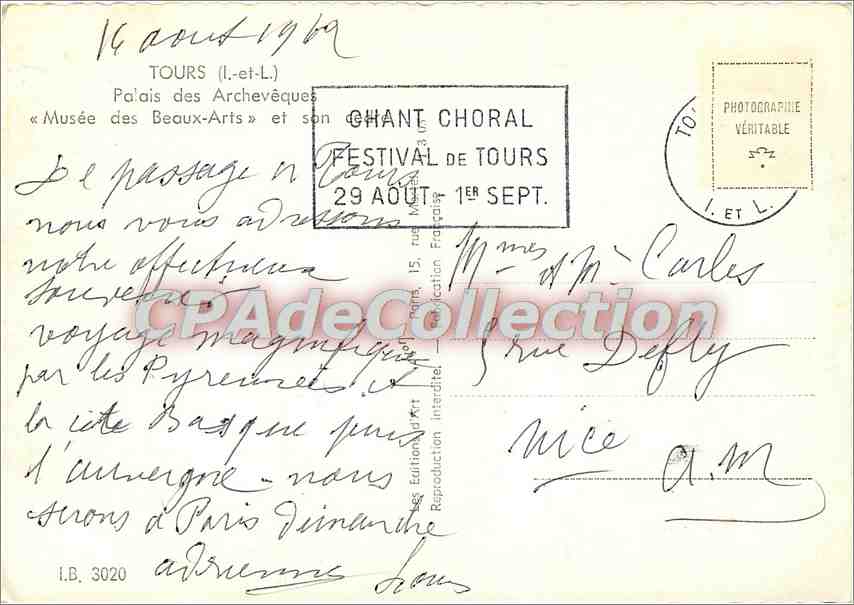 16 aout 1969
TOURS (I.-et-L.)
Palais des Archevêques
« Musée des Beaux-Arts » et son
CHANT CHORAL
FESTIVAL DE TOURS
29 AOUT. 1ER SEPT.
PHOTOGRAPHIE
VÉRITABLE
TO
I. ET L.
De passage à Tours
nous vous adressons
notre affectueux
souvenir.
voyage magnifique
par les Pyrennées et
la côte Basque puis
l'auvergne - nous
serons à Paris dimanche
adrienne Louis
Mmes et Mr Carles
5 rue Defly
Nice
a.m
CPAdeCollection
Les Editions d'Art Paris, 15, rue
Reproduction interdite. — Fabrication Française
I.B. 3020